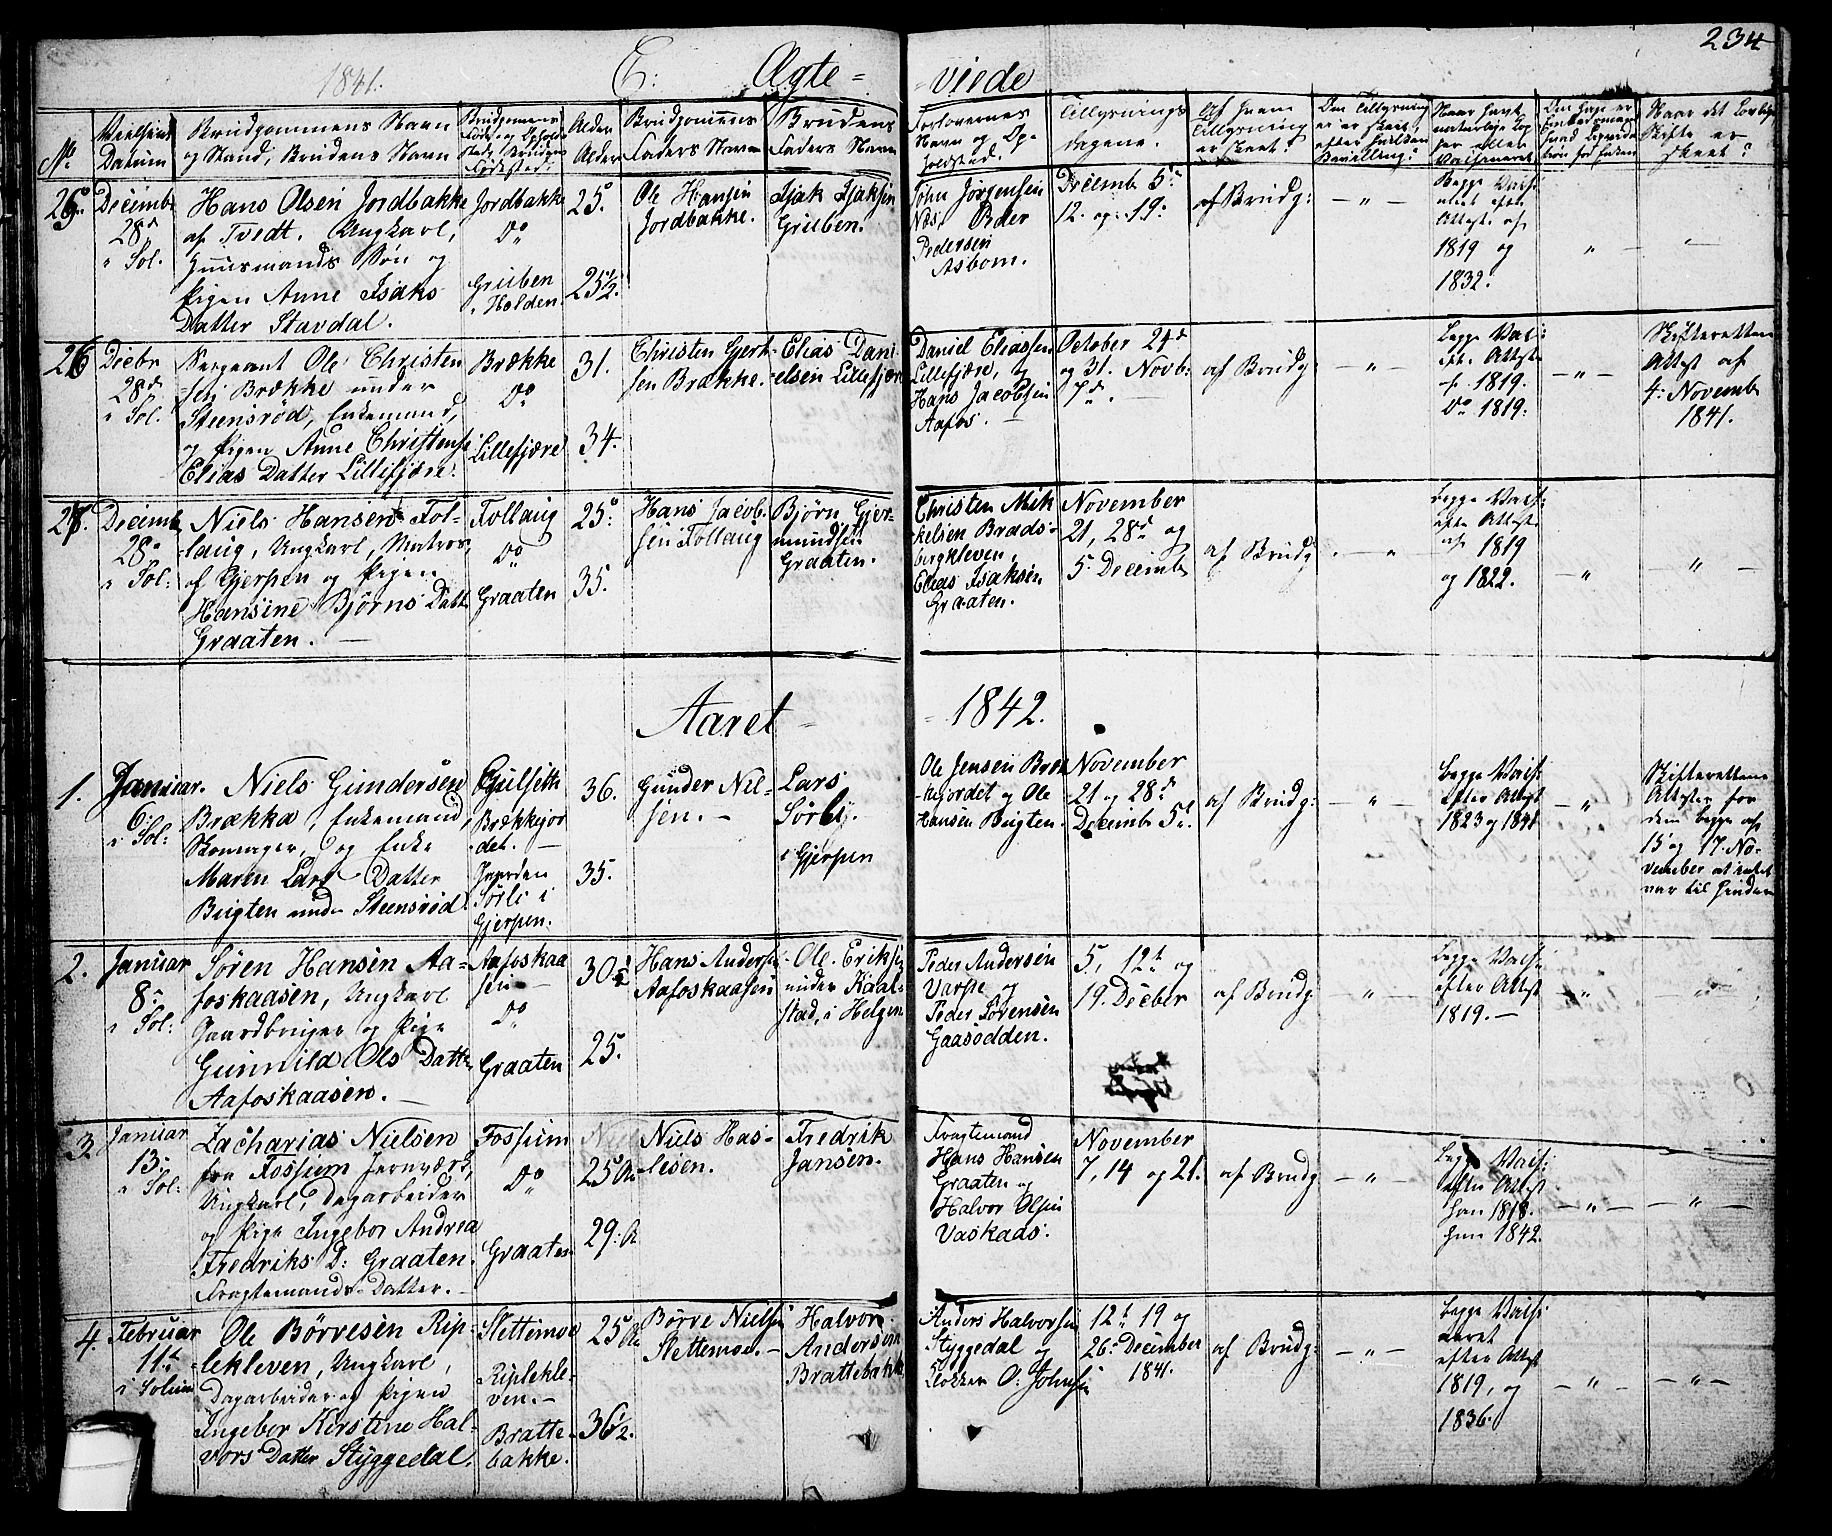 234
1841.
C: Ægte= =viede
No
Vielsens Datum
Brudgommens Navn og Stand, Brudens Navn
Brudgommens Føde- og Opholds Sted, Brudens Fødested.
Alder Alder
Brudgommens Faders Navn
Brudens Faders Navn
Forlovernes Navn og Opholdsted.
Tillysnings dagene.
Af hvem Tillysning er skeet?
Om Tillysning er ei skeet, efter hvilken Bevilling?
Naar havt naturlige Kopper eller Vaccineret
Naar det lovlige Skifte er skeet?
25.
Decembr
28de
i Sol.
Hans Olsen Jordbakke
af Tvedt. Ungkarl,
Huusmands Søn og
Pigen Anne Isaks
Datter Stavdal.
Jordbakke
Do
Gruben
i Holden
25.
25 1/2.
Ole Hansen
Jordbakke.
Isak Isaksen
Gruben.
John Jørgensen
Næs, Peder
Pedersen
Asbom.
Decemb 5te
12. og 19.
af Brudg:
— „ —
Begge Vacc
efter
Attest. af
1819 og
1832.
„ —
— „ —
26
Decbr
28de
i Sol.
Sergeant Ole Christen
sen Brække under
Steensrød, Enkemand,
og Pigen Anne Christense
Elias Datter Lillefjære.
Brække
Do
Lillefjære
31.
34.
Christen Gjert
sen Brække.
Elias Dani
elsen Lillefjære
Daniel Eliassen
Lillefjære, og
Hans Jacobsen
Aafos. —
October 24de
og 31. Novb:
7de. —
af Brudg
— „ —
Begge Vacc:
eft. Attest
af 1819.
Do 1819.
— „ —
Skifterettens
Attest af
4. Novemb
1841.
27.
Decemb
28de
i Sol:
Niels Hansen Fol-
laug, Ungkarl, Matros,
af Gjerpen og Pigen
Hansine Bjørns Datt
Graaten. —
Follaug
Do
Graaten
25.
35.
Hans Jacob
sen Follaug
Bjørn Gjer-
mundsen
Graaten.
Christen Mik
kelsen Brads-
bergkleven,
Elias Isaksen
Graaten.
November
21, 28de og
5. Decemb
af Brudg
— „
Begge Vacc:
efter Attest
af 1819
og 1822.
— „
— „ —
Aaret = = 1842.
1.
Januar.
6.
i Sol:
Niels Gundersen
Brække, Enkemand,
Skomager, og Enke
Maren Lars Datter
Bugten under Steensrød.
Gulseth
Brækkejor
det. —
Jorden
Sørli i
Gjerpen.
36.
35.
Gunder Niel-
sen. —
Lars
Sørli.
i Gjerpen
Ole Jensen Bræk
kejordet og Ole
Hansen Bugten.
November
21 og 28de
Decemb 5te
af Brudg:
— „ —
Begge Vacc:
efter Attest
1823 og 1841
„
Skifterettens
Attester for
dem begge af
15 og 17. No-
vember at intet
var til Hinder
2.
Januar
8de
i Sol:
Søren Hansen Aa-
foskaasen, Ungkarl
Gaardbruger og Pige
Gunnild Ols Datter
Aafoskaasen. —
Aafoskaa
sen —
Do
Graaten
30 1/2
25.
Hans Andersen
Aafoskaasen
Ole Eriksen
under Kaal-
stad, i Helgen
Peder Andersen
Varpe og
Peder Sørensen
Gaasodden.
5, 12te og
19. Decber
af Brudg
— „ —
Begge Vacc:
efter Attest
1819. —
„
— „ —
3.
Januar
13.
i Sol:
Zacharias Nielsen
fra Fossum Jernværk,
Ungkarl, Dagarbeider
og Pige Ingebor Andrea
Fredriks D: Graaten.
Fragtemands-Datter.
Fossum
Do
Graaten
25 Aa
29: A
Niels Has-
lesen.
Fredrik
Jansen.
Fragtemand
Hans Hansen
Graaten og
Halvor Olsen
Vaskads.
November
7, 14 og 21.
af Brudg
— „ —
Begge Vacc:
efter Attest
han 1818.
hun 1842.
— „ —
— „ —
4.
Februar
11te
i Solum
Ole Børvesen Rip-
lekleven, Ungkarl,
Dagarbeider og Pigen
Ingebor Kirstine Hal-
vors Datter Styggedal.
Slettemoe
Riplekle-
ven. —
Bratte-
bakke.
25 Aa
36 1/2.
Børve Nielsen
Slettemoe. —
Halvor
Andersen
Brattebakke
Anders Halvorsen
Styggedal og
Klokker O: Johnsen
12te 19 og
26. December
1841.
af Brudg:
— „ —
Begge Vacc:
efter Attest
1819, og
1836.
— „ —
— „ —